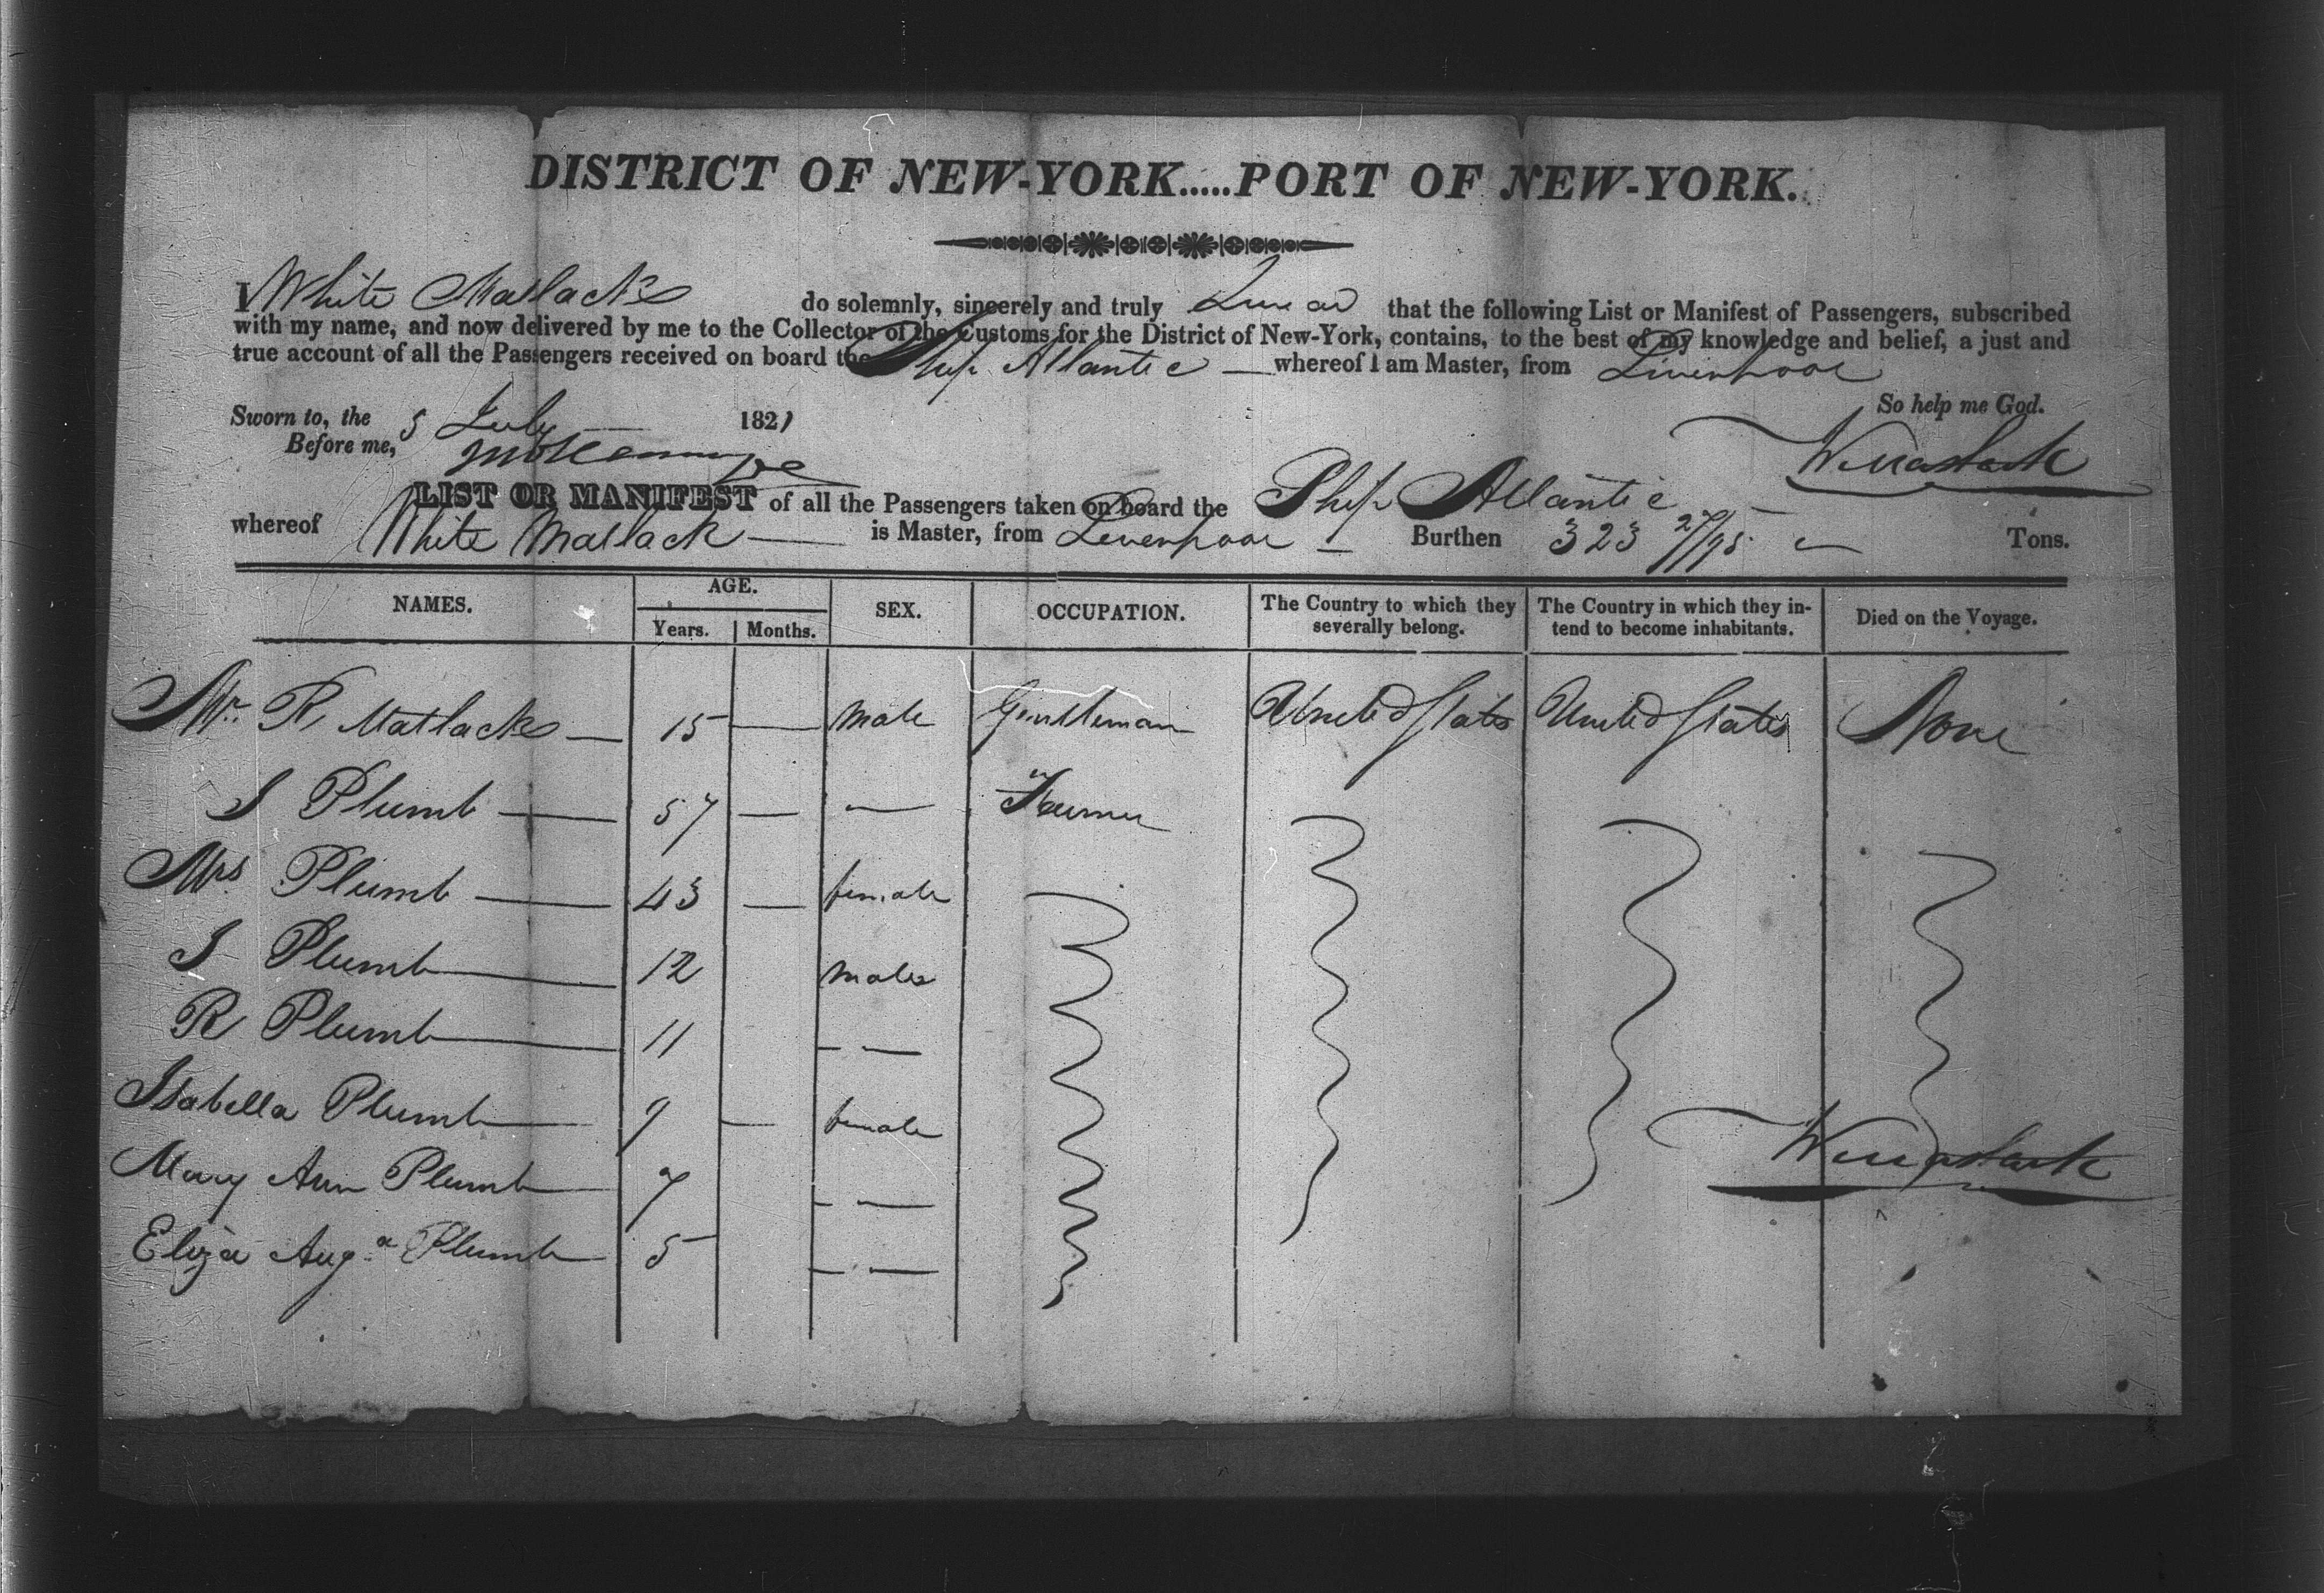 DISTRICT OF NEW-YORK.....PORT OF NEW-YORK.
I White Matlack do solemnly, sincerely and truly Swear that the following List or Manifest of Passengers, subscribed
with my name, and now delivered by me to the Collector of the Customs for the District of New-York, contains, to the best of my knowledge and belief, a just and
true account of all the Passengers received on board the Ship Atlantic — whereof I am Master, from Liverpool
So help me God.
Sworn to, the 5 July 1821
Before me,
W Matlack
LIST OR MANIFEST of all the Passengers taken on board the Ship Atlantic
whereof White Matlack — is Master, from Liverpool — Burthen 323 27/95 — Tons.
NAMES. AGE. SEX. OCCUPATION. The Country to which they severally belong. The Country in which they intend to become inhabitants. Died on the Voyage.
Years. Months.
Mr. R Matlack — 15 — Male Gentleman United States United States None
J Plumb — 57 — — Farmer
Mrs Plumb — 43 — female
J Plumb — 12 males
R Plumb — 11 — —
Isabella Plumb — 9 — female
W Matlack
Mary Ann Plumb — 7 — —
Eliza Auga Plumb — 5 — —